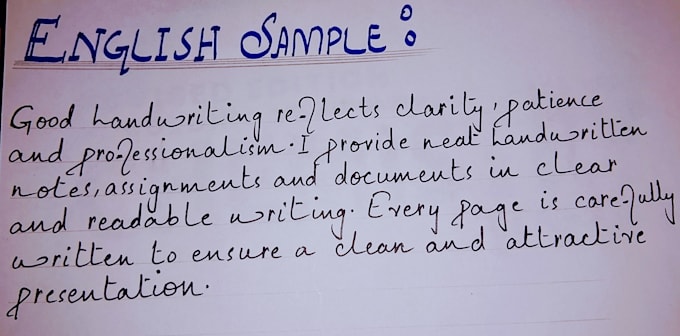 ENGLISH SAMPLE:
Good handwriting reflects clarity, patience
and professionalism. I provide neat handwritten
notes, assignments and documents in clear
and readable writing. Every page is carefully
written to ensure a clean and attractive
presentation.